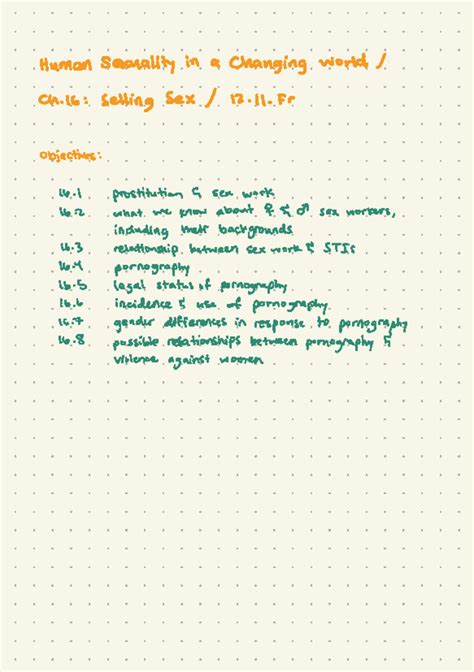 Human Sexuality in a Changing World /
Ch.16: Selling Sex / 12.11.Fr
Objectives:
16.1 prostitution & sex work
16.2 what we know about ♀ & ♂ sex workers,
including their backgrounds
16.3 relationship between sex work & STIs
16.4 pornography
16.5 legal status of pornography
16.6 incidence & use of pornography
16.7 gender differences in response to pornography
16.8 possible relationships between pornography &
violence against women